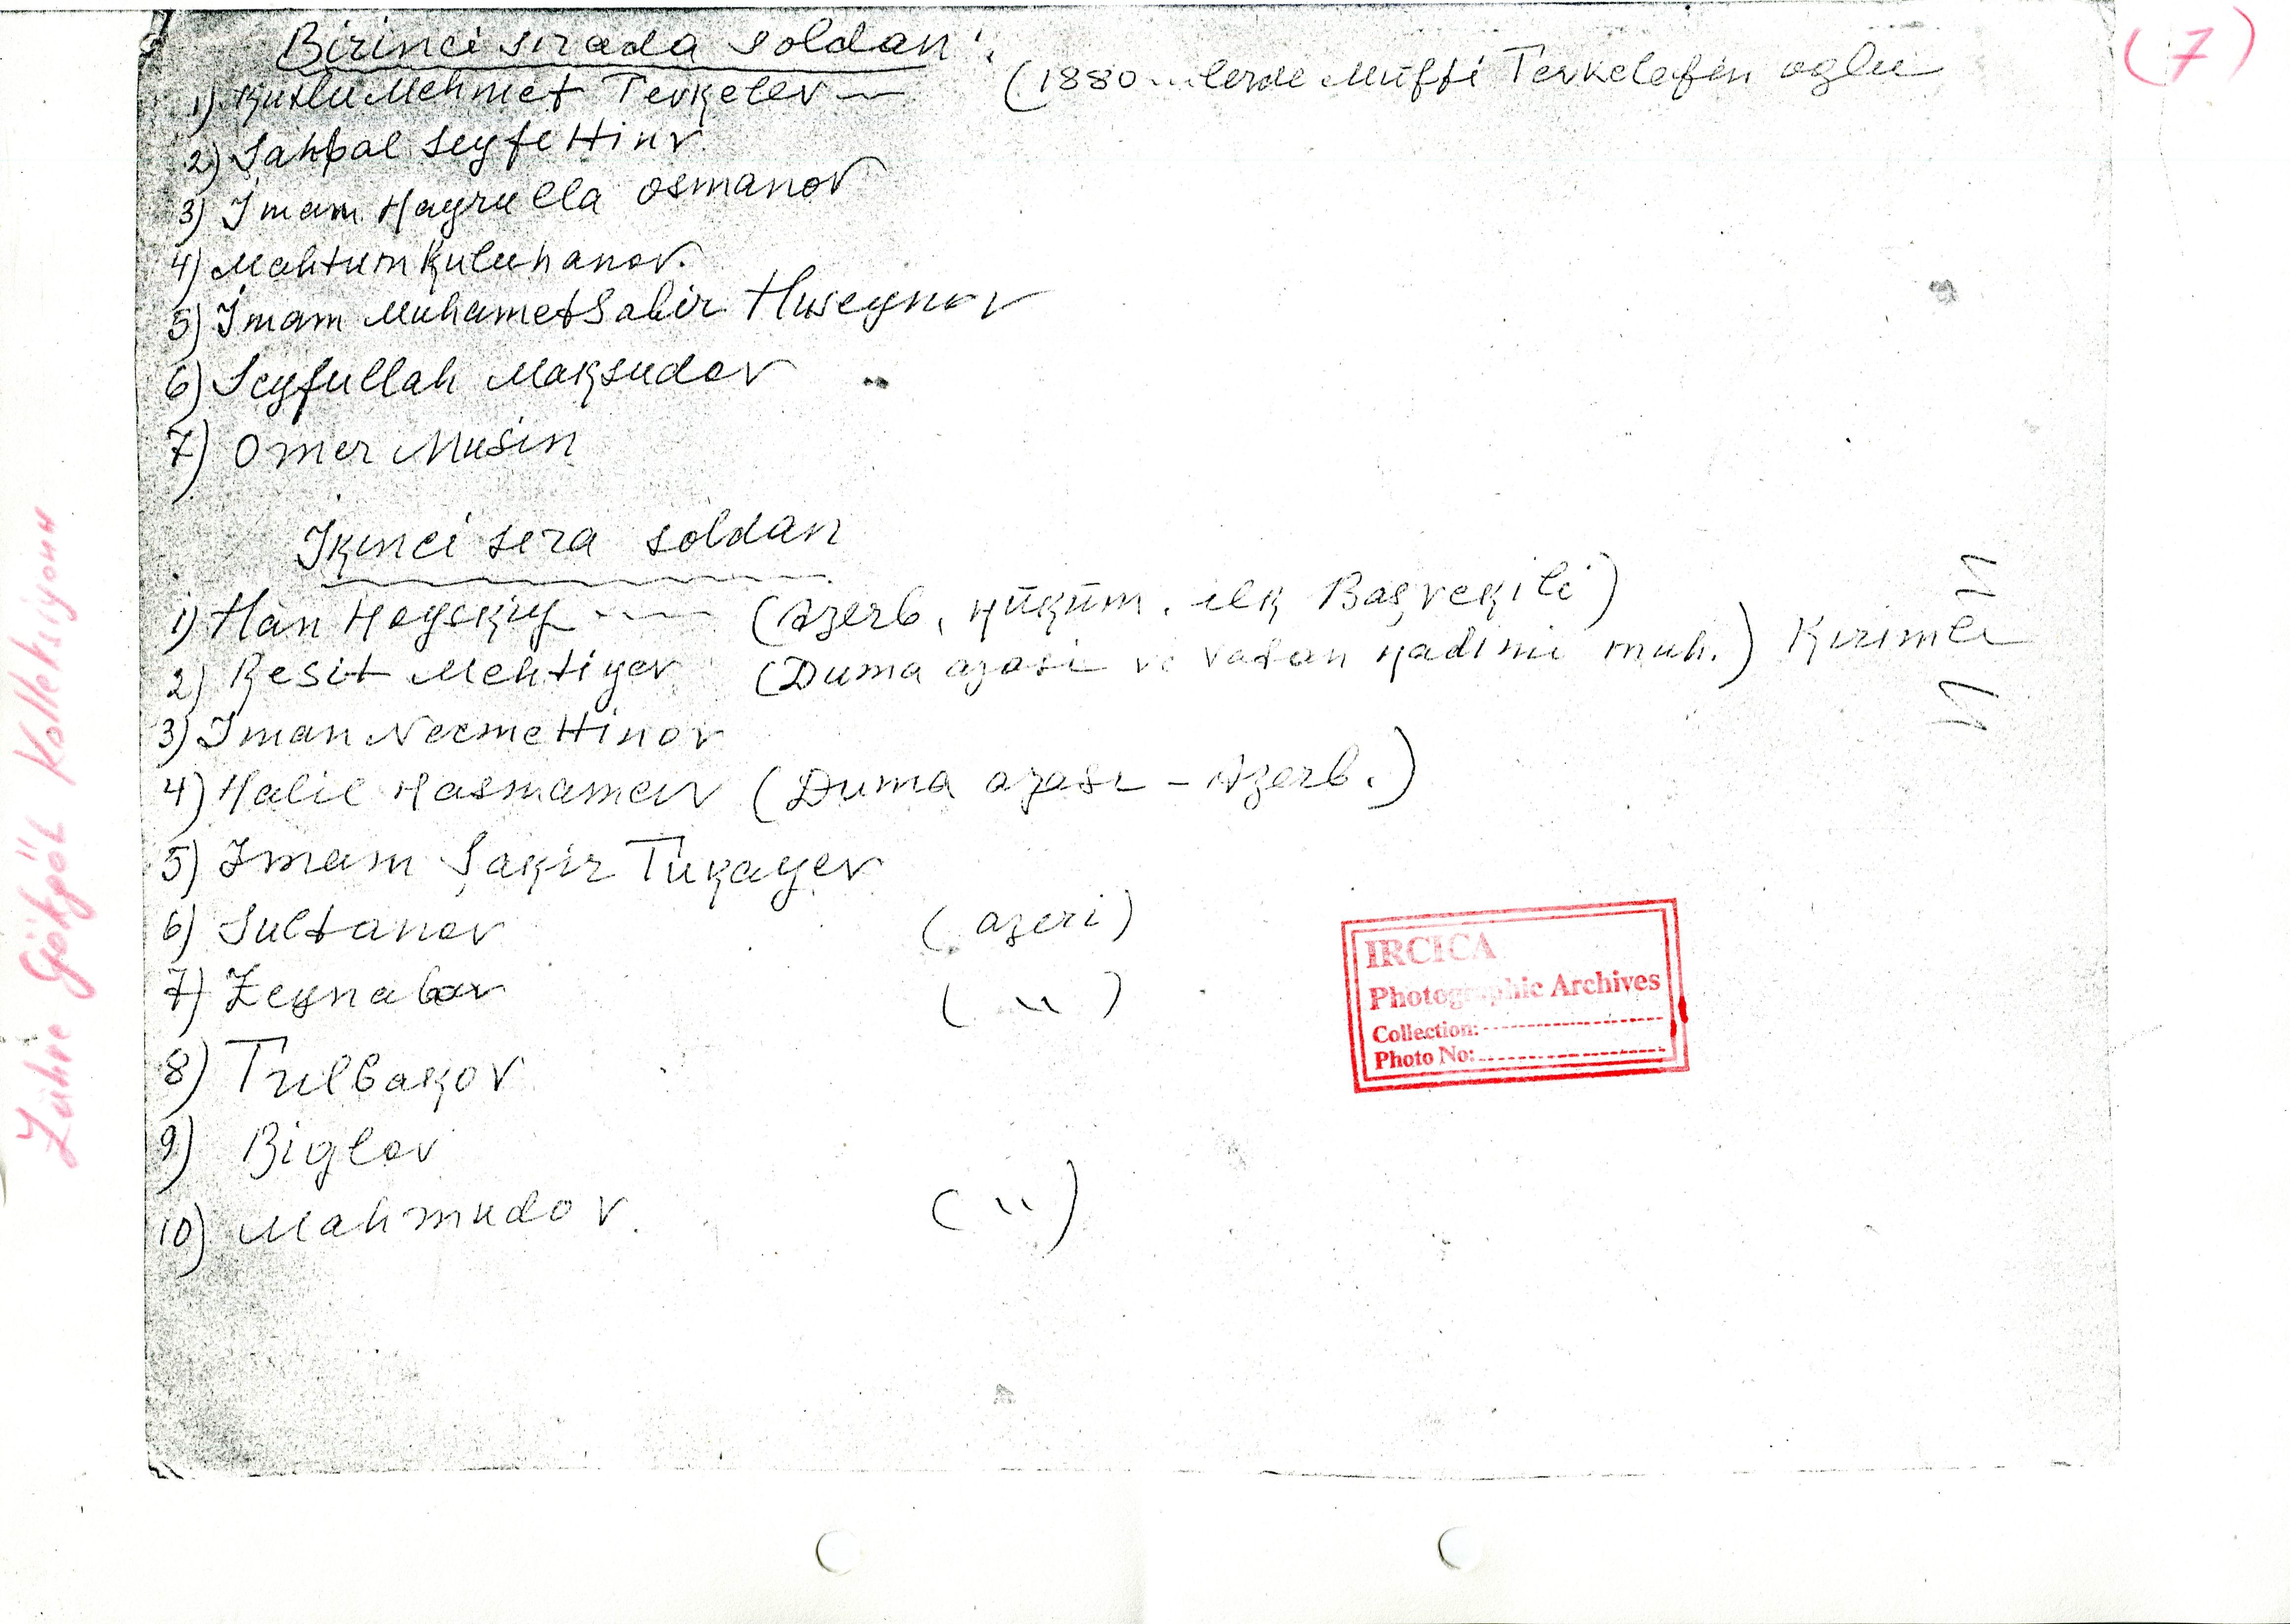 (7)
Birinci sırada soldan:
1) Kutlu Mehmet Tevkelev — (1880 .. lerde Müfti Tevkelefin oglu
2) Şahbal Seyfettinv
3) İmam Hayrulla Osmanov
4) Mahtum Kuluhanov.
5) İmam Muhamet Sabir Huseynov
6) Seyfullah Maksudov
7) Omer Musin
İkinci sıra soldan
1) Han Hoyskiy --- (Azerb, Hüküm. ilk Başvekili)
2) Reşit Mehtiyev (Duma azası ve Vatan Hadimi muh.) Kırımlı
3) İman Necmettinov
4) Halil Hasmamev (Duma azası - Azerb.)
5) İmam Şakir Tukayev
6) Sultanov (azeri)
7) Zeynalov (")
8) Tulbakov
9) Biglov
10) Mahmudov. (")
Zühre Gökgöl Kolleksiyonu
IRCICA
Photographic Archives
Collection:
Photo No: